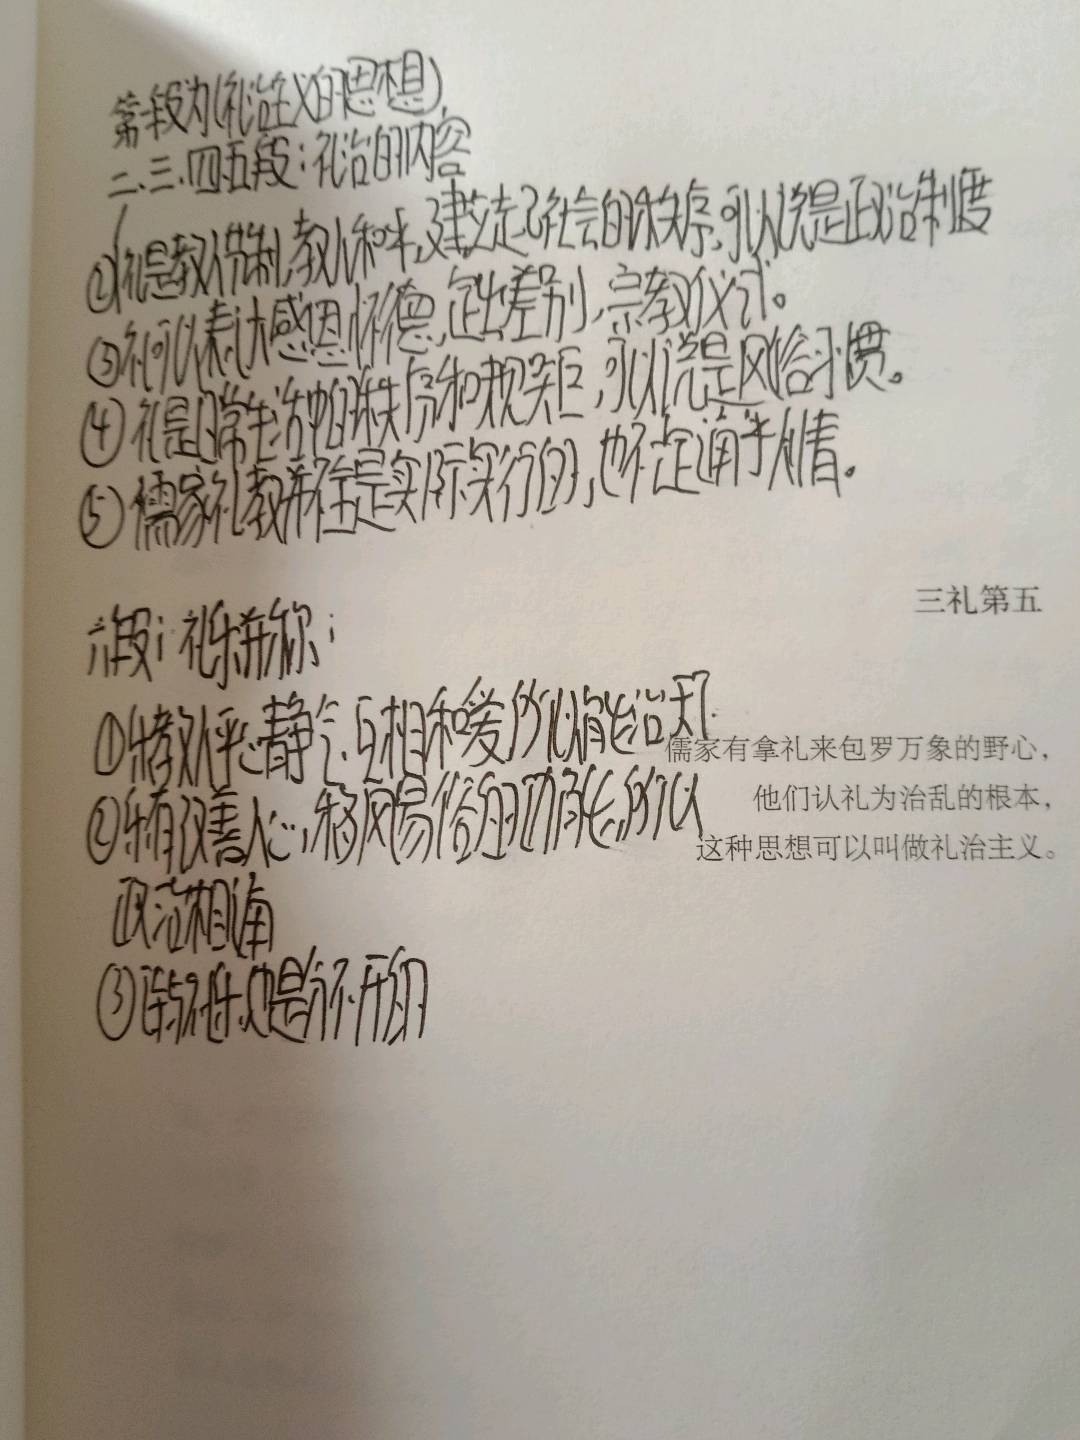 第一段为(礼治主义的思想)
二、三、四五段：礼治的内容
②礼是教人节制,教人和平,建立起了社会的秩序,可以说是政治制度
③礼可以表达感恩怀德,定出差别,宗教仪式。
④礼是日常生活中的秩序和规矩,可以说是风俗习惯。
⑤儒家礼教并往是实际实行的,也不一定通乎人情。
三礼第五
六段；礼乐并称；
①乐教人平心静气,互相和爱,所以能治天下.
儒家有拿礼来包罗万象的野心，
②乐有改善人心,移风易俗的功能,所以
他们认礼为治乱的根本，
这种思想可以叫做礼治主义。
政治相通
③诗与礼乐也是分不开的